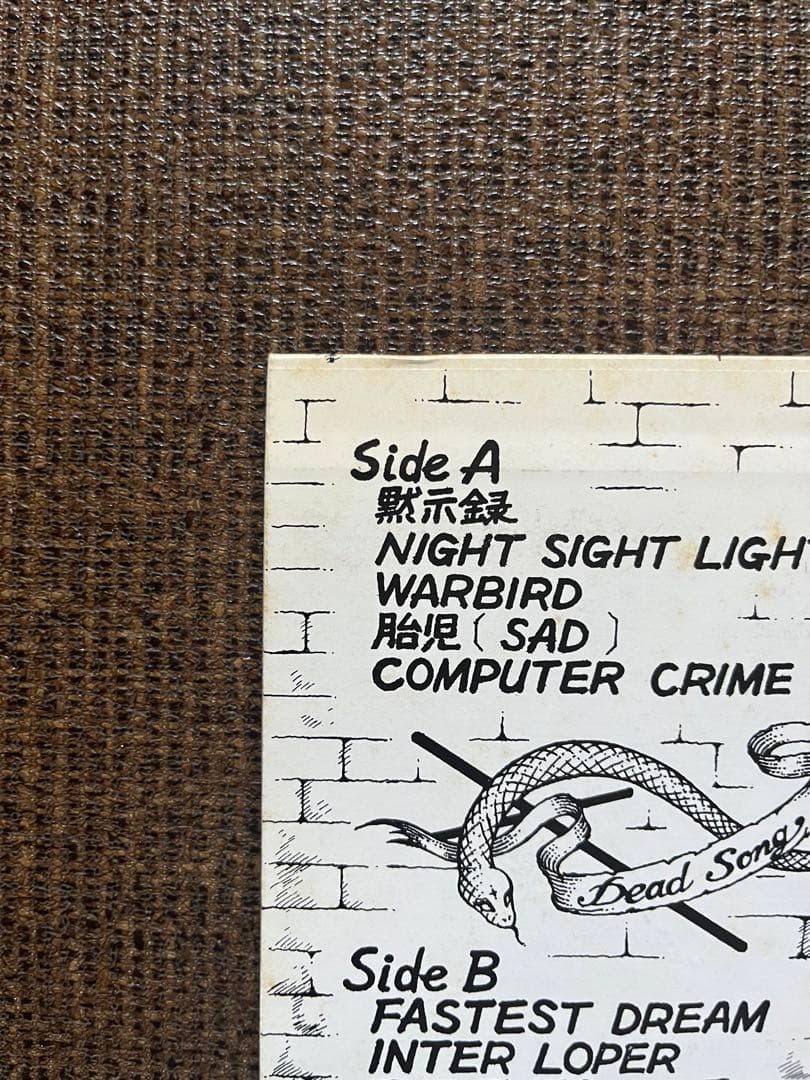 Side A
黙示録
NIGHT SIGHT LIGHT
WARBIRD
胎児〔 SAD 〕
COMPUTER CRIME
Dead Song
Side B
FASTEST DREAM
INTER LOPER